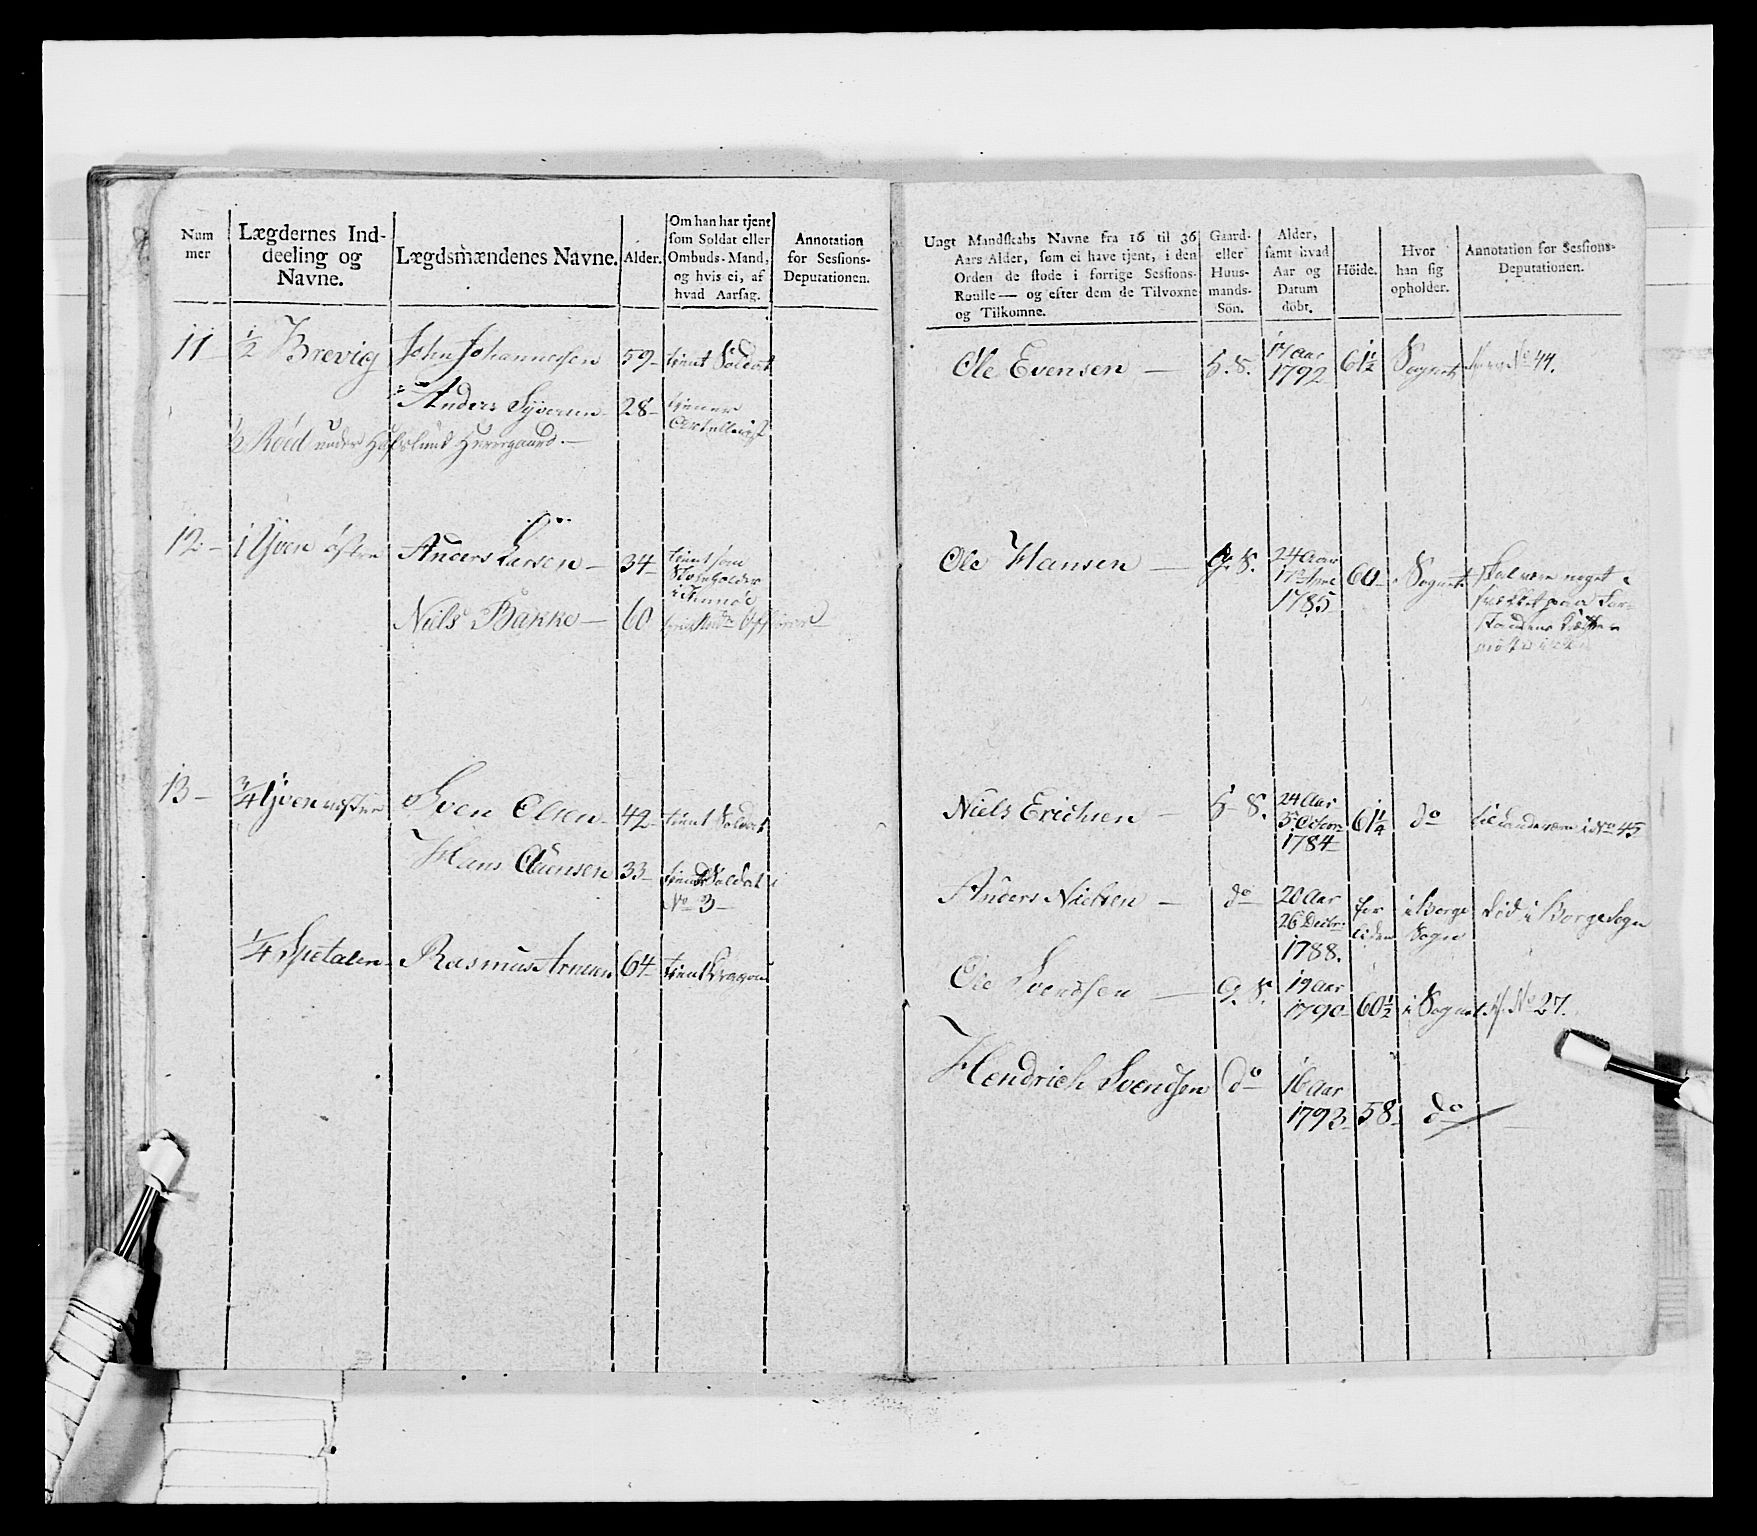 Num
mer
Lægdernes Ind-
deeling og
Navne.
Lægdsmændenes Navne.
Alder.
Om han har tjent
som Soldat eller
Ombuds-Mand,
og hvis ei, af
hvad Aarsag.
Annotation
for Sessions-
Deputationen.
11 ½ Brevig John Johannesen 59 tient Soldat
Anders Syversen 28 tiener
½ Röed under Hafslund Herregaard.
12 1 Yven østre Anders Larsen 34 tient som
Niels Bakke 60
13 ¾ Yven vestre Sven Olsen 42 tient Soldat
Hans Clausen 33 tient Soldat
No 3
¼ Spetalen Rasmus Arnesen 64 tient Dragon
Ungt Mandskabs Navne fra 16 til 36
Aars Alder, som ei have tjent, i den
Orden de stode i forrige Sessions-
Roulle — og efter dem de Tilvoxne
og Tilkomne.
Gaard-
eller
Huus-
mands-
Sön.
Alder,
samt hvad
Aar og
Datum
döbt.
Höide.
Hvor
han sig
opholder.
Annotation for Sessions-
Deputationen.
Ole Evensen — H. S. 17 Aar
1792 61½ Sognet No 44.
Ole Hansen — G. S. 24 Aar
1785 60 Sognet skal være noget
Niels Erichsen — H. S. 24 Aar
5 Octobr
1784 61¼ do til Landeværn i No 45
Anders Nielsen — do 20 Aar
26 Decbr
1788. i Borge
Sogn død i Borge Sogn
Ole Svendsen — G. S. 19 Aar
1790 60½ i Sognet No 27.
Hendrich Svendsen do 16 Aar
1793 58 do